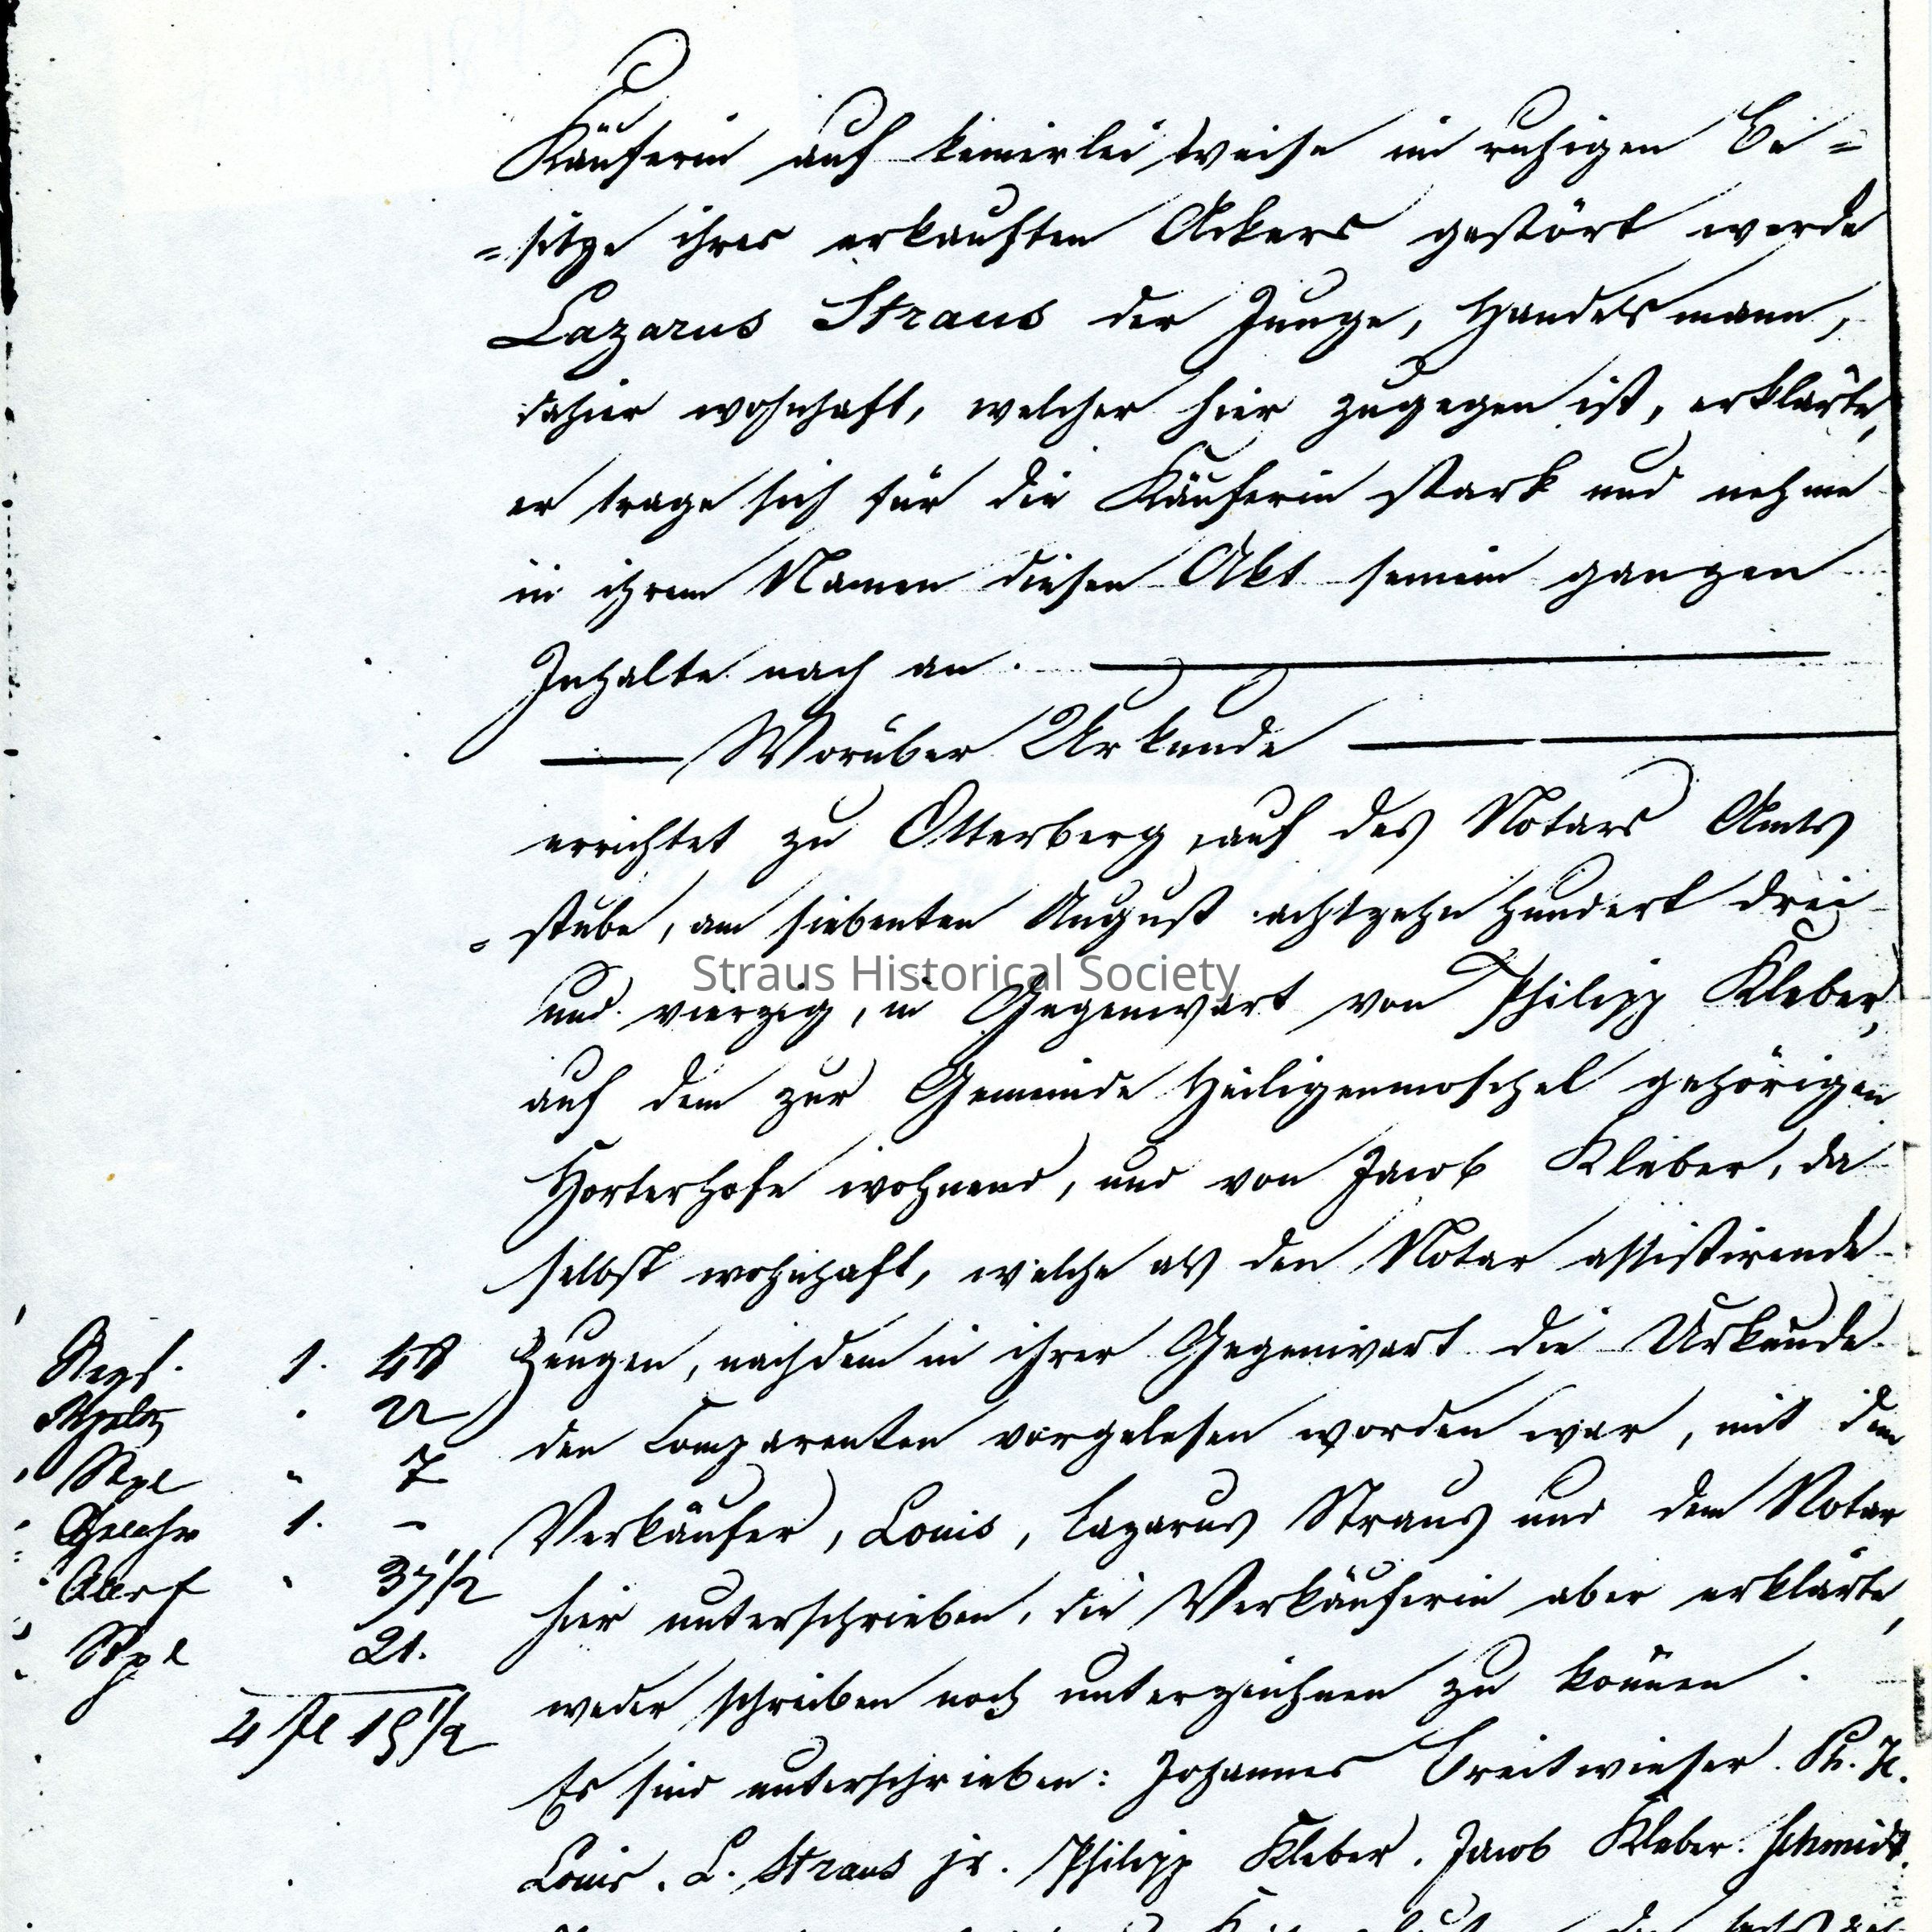 Käuferin auf keinerlei Weise im ruhigen Be=
=sitze ihres erkauften Ackers gestört werde
Lazarus Straus der Junge, Handelsmann,
dahier wohnhaft, welcher hier zugegen ist, erklärte,
er trage sich für die Käuferin stark und nehme
in ihrem Namen diesen Akt seinem ganzen
Inhalte nach an.
Worüber Urkunde
errichtet zu Otterberg, auf des Notars Amts
=stube, am siebenten August achtzehn hundert drei
Straus Historical Society
und vierzig, in Gegenwart von Philipp Kleber,
auf dem zur Gemeinde Heiligenmoschel gehörigen
Horterhofe wohnend, und von Jacob Kleber, da
selbst wohnhaft, welche als den Notar assistirende
Zeugen, nachdem in ihrer Gegenwart die Urkunde
den Comparenten vorgelesen worden war, mit dem
Verkäufer, Louis, Lazarus Straus und dem Notar
hier unterschrieben, die Verkäuferin aber erklärte,
weder schreiben noch unterzeichnen zu können.
Es sind unterschrieben: Johannes Breitwieser. Ph. H.
Louis. L. Straus jr. Philipp Kleber. Jacob Kleber. Schmidt.
1. 48
22
Stpl " 7
1. –
" 37 1/2
Stpl 21.
4 fl 15 1/2